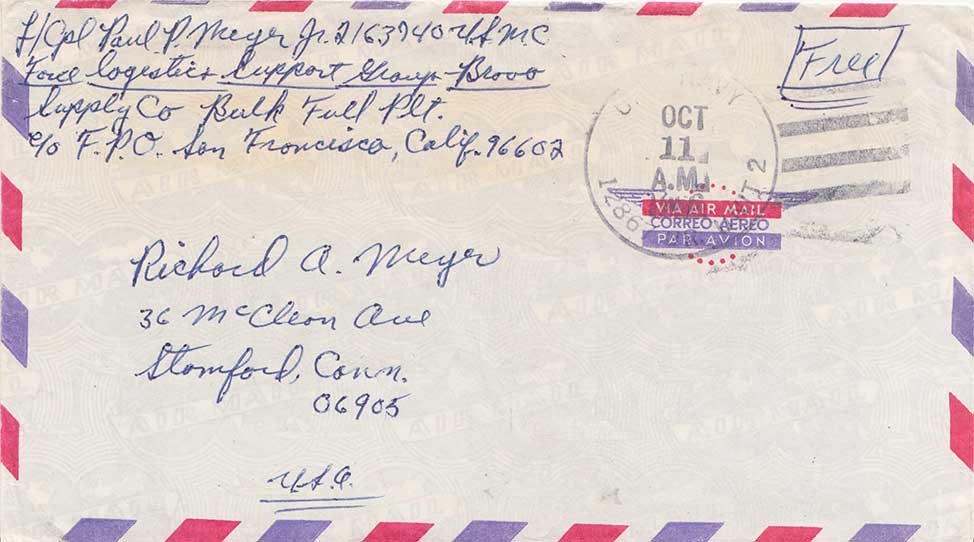 L/Cpl Paul P. Meyer Jr. 2163940 U.S.M.C
Force Logistics Support Group-Bravo
Supply Co Bulk Fuel Plt.
c/o F.P.O. San Francisco, Calif. 96602
Free
OCT
11
A.M.
VIA AIR MAIL
CORREO AEREO
PAR AVION
Richard A. Meyer
36 McClean Ave
Stamford, Conn.
06905
U.S.A.